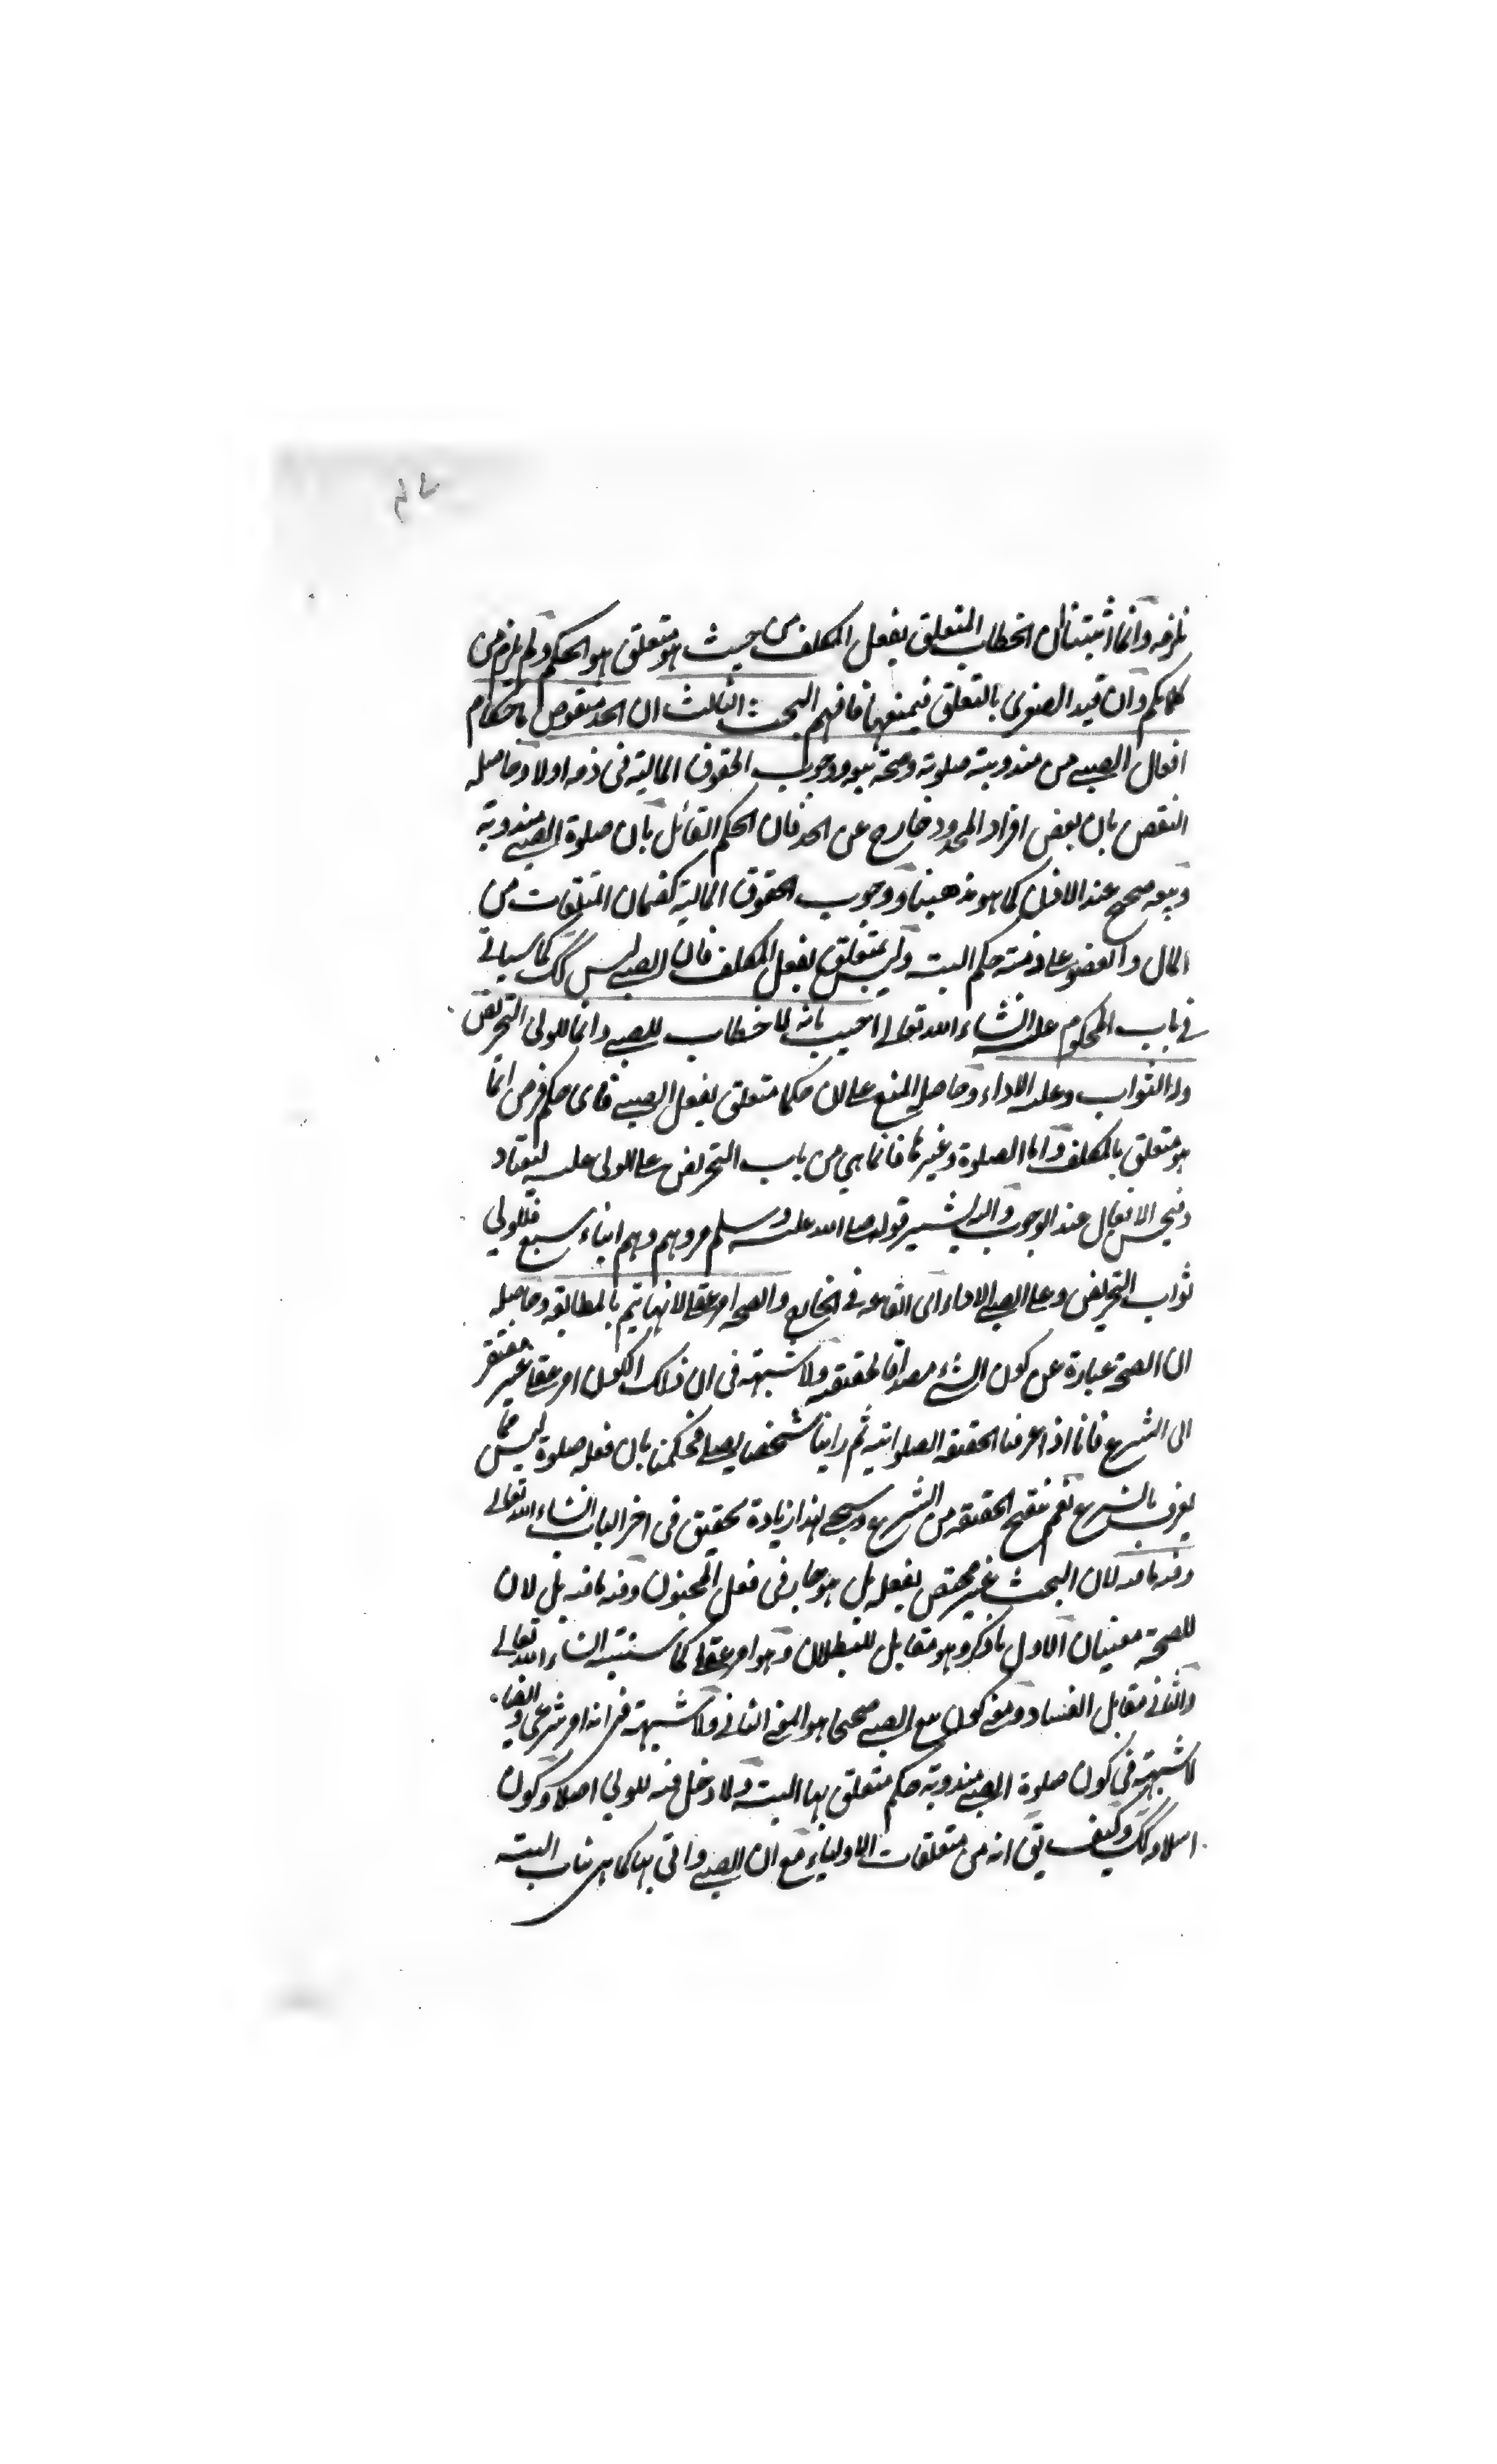 يلزمه وانما اثبتنا ان الخطاب المتعلق بفعل المكلف من حيث هو متعلق هو الحكم ولم يلزم من
كلامكم وان قيد الصغرى بالتعلق فيمنعها فافهم البحث الثالث ان الحد منقوض باحكام
افعال الصبي من مندوبية صلوته وصحة بيعه ووجوب الحقوق المالية في ذمه اولا وحاصله
النقض بان بعض افراد المحدود خارج عن الحد فان الحكم القائل بان صلوة الصبي مندوبة
وبيعه صحيح عند الاذن كما هو مذهبنا ووجوب الحقوق المالية كضمان المتلفات من
المال والعضو على ذمته حكم البتة وليس بمتعلق بفعل المكلف فان الصبي ليس كك كما سياتي
في باب المحكوم عليه انشاء الله تعالى اجيب بانه لا خطاب للصبي وانما للولي التحريض
وله الثواب وعليه الاداء وحاصله المنع على ان حكما متعلق بفعل الصبي فاى حكم فرض انما
هو متعلق بالمكلف واما الصلوة وغيرها فانما هي من باب التحريض على الولى عليه ليعتاد
الافعال عند الوجوب واليه يشير قوله صلى الله عليه وسلم مروهم وهم ابناء سبع فللولي
ثواب التحريض وعلى الصبي الاداء اى القاعه في الخارج والصحة امر عقلي لانها تتم بالمطابقة وحاصله
ان الصحة عبارة عن كون الشيء مصداقا لحقيقته ولا شبهة في ان ذلك الكون امر عقلي غير مفتقر
الى الشرع فانا اذا عرفنا الحقيقة الصلواتية ثم راينا شخصا يصلي فحكمنا بان فعله صلوة ليس مما
يعرف بالشرع نعم تنقيح الحقيقة من الشرع وسيجئ لهذا زيادة تحقيق في اخر الباب انشاء الله تعالى
وفيه ما فيه لان البحث غير مختص بفعله بل هو جار في فعل المجنون وفيه ما فيه بل لان
للصحة معنيان الاول ما ذكر وهو مقابل للبطلان وهو امر عقلي كما سنبينه انشاء الله تعالى
والثاني مقابل الفساد ومعنى كون بيع الصبي صحيحا هو المعنى الثاني ولا شبهة في انه امر شرعي وايضا
لا شبهة في كون صلوة الصبي مندوبة حكم متعلق بها البتة ولا دخل فيه للولي اصلا وكون
اسلامه كك وكيف يق انه من متعلقات الاولياء مع ان الصبي لو اتى بها كما هي يثاب البتة